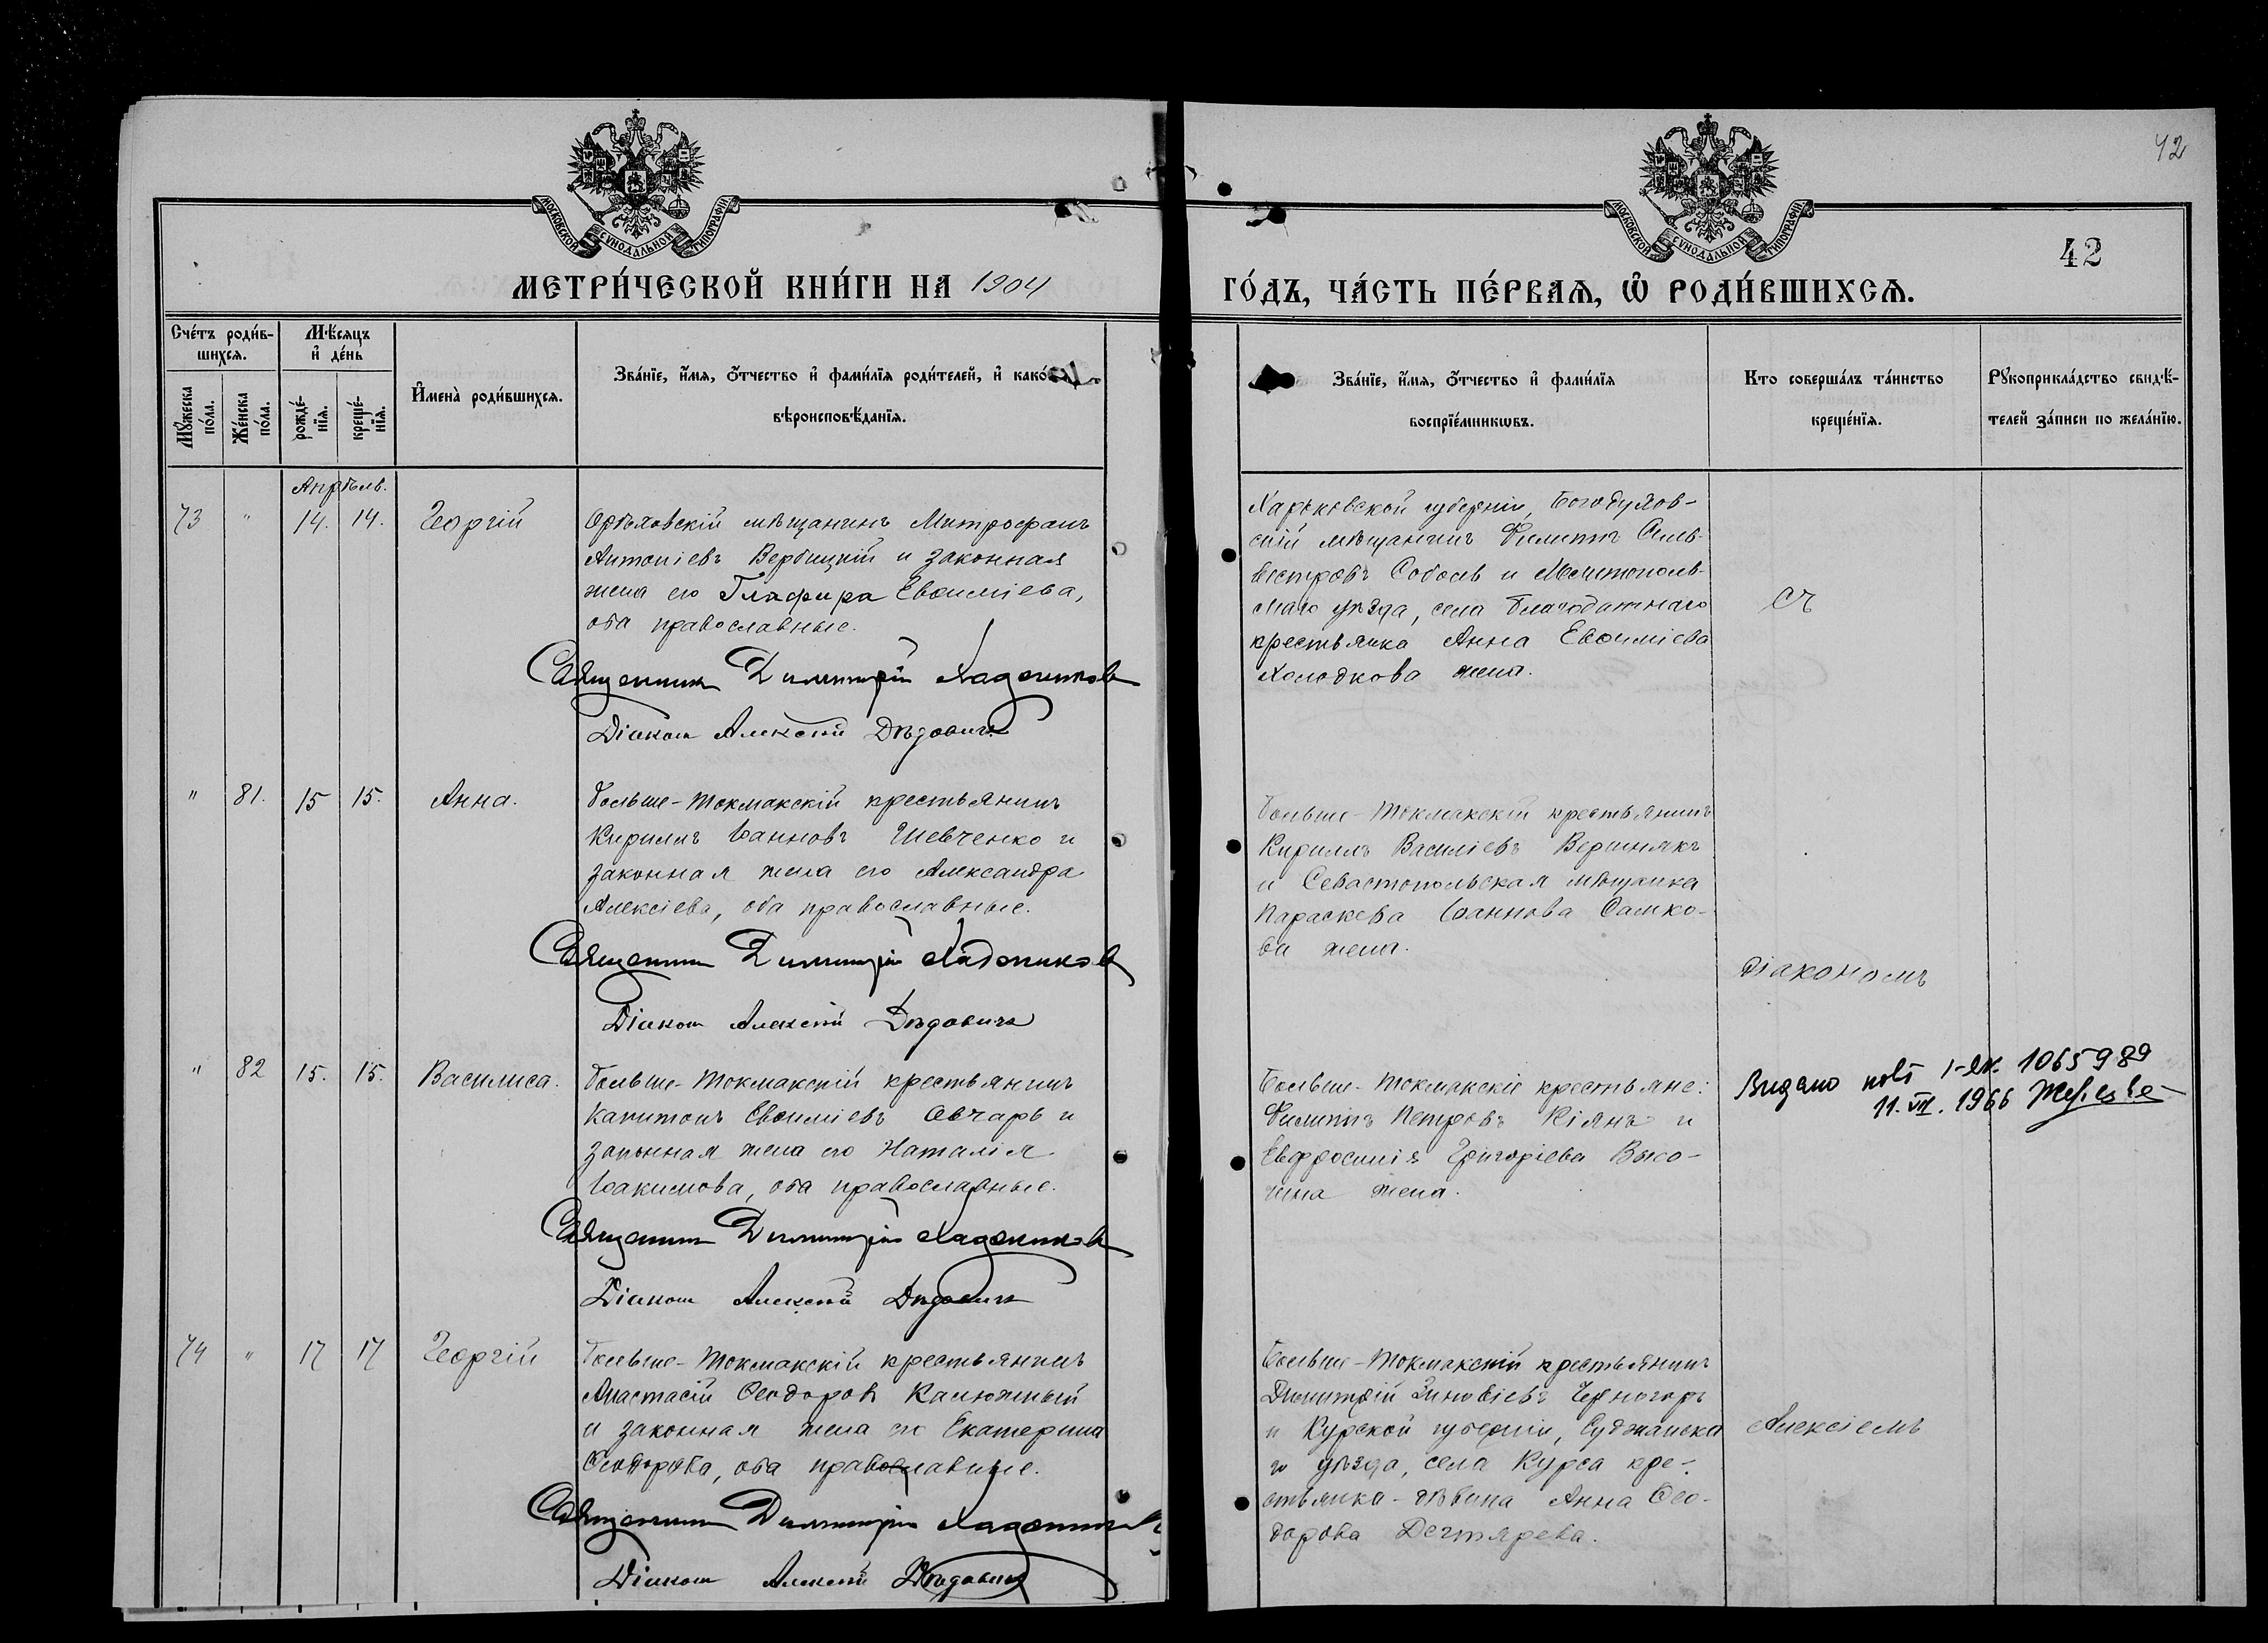 42
МОСКОВСКОЙ СУНОДАЛЬНОЙ ТИПОГРАФІИ
МОСКОВСКОЙ СУНОДАЛЬНОЙ ТИПОГРАФІИ
42
МЕТРИ́ЧЕСКОЙ КНИ́ГИ НА 1904
ГО́ДЪ, ЧА́СТЬ ПЕ́РВАѦ, Ѡ҆ РОДИ́ВШИХСѦ.
Сче́тъ роди́в-
шихсѧ.
Мꙋ́жеска по́ла.
Же́нска по́ла.
Мѣ́сѧцъ
и҆ де́нь
рожде́-
нїѧ.
креще́-
нїѧ.
И҆мена̀ роди́вшихсѧ.
Зва́нїе, и҆́мѧ, ѻ҆́тчество и҆ фами́лїѧ роди́телей, и҆ како́
вѣроисповѣ́данїѧ.
Зва́нїе, и҆́мѧ, ѻ҆́тчество и҆ фами́лїѧ
воспрїе́мникѡвъ.
Кто соверша́лъ та́инство
креще́нїѧ.
Рꙋкоприкла́дство свидѣ́-
телей за́писи по жела́нїю.
Апрѣль.
73 " 14. 14. Георгій
Орѣховскій мѣщанинъ Митрофанъ
Антоніевъ Вербицкій и законная
жена его Глафира Евѳиміева,
оба православные.
Священникъ Димитрій Ладониковъ
Діаконъ Алексій Дѣдовичъ
Харьковской губерніи, Богодухов-
скій мѣщанинъ Филиппъ Силь-
вестровъ Соболь и Мелитополь-
скаго уѣзда, села Благодатнаго
крестьянка Анна Евѳиміева
Холодкова жена.
Съ
" 81. 15 15. Анна.
Больше-Токмакскій крестьянинъ
Кириллъ Іоанновъ Шевченко и
законная жена его Александра
Алексіева, оба православные.
Священникъ Димитрій Ладониковъ
Діаконъ Алексій Дѣдовичъ
Больше-Токмакскій крестьянинъ
Кириллъ Василіевъ Вершнякъ
и Севастопольская мѣщанка
Параскева Іоаннова Самко-
ва жена.
діакономъ
" 82 15. 15. Василиса.
Больше-Токмакскій крестьянинъ
Капитонъ Евѳиміевъ Овчаръ и
законная жена его Наталія
Іоакимова, оба православные.
Священникъ Димитрій Ладониковъ
Діаконъ Алексій Дѣдовичъ
Больше-Токмакскіе крестьяне:
Филиппъ Петровъ Кіянъ и
Евфросинія Григоріева Высо-
чина жена.
Видано 1065989
11.VII.1966
74 " 17 17 Георгій
Больше-Токмакскій крестьянинъ
Анастасій Ѳеодоровъ Калюжный
и законная жена его Екатерина
Ѳеодорова, оба православные.
Священникъ Димитрій Ладониковъ
Діаконъ Алексій Дѣдовичъ
Больше-Токмакскій крестьянинъ
Димитрій Зиновіевъ Черногоръ
и Курской губерніи, Суджанска
го уѣзда, села Курса кре-
стьянка-дѣвица Анна Ѳео-
дорова Дегтярева.
Алексіемъ